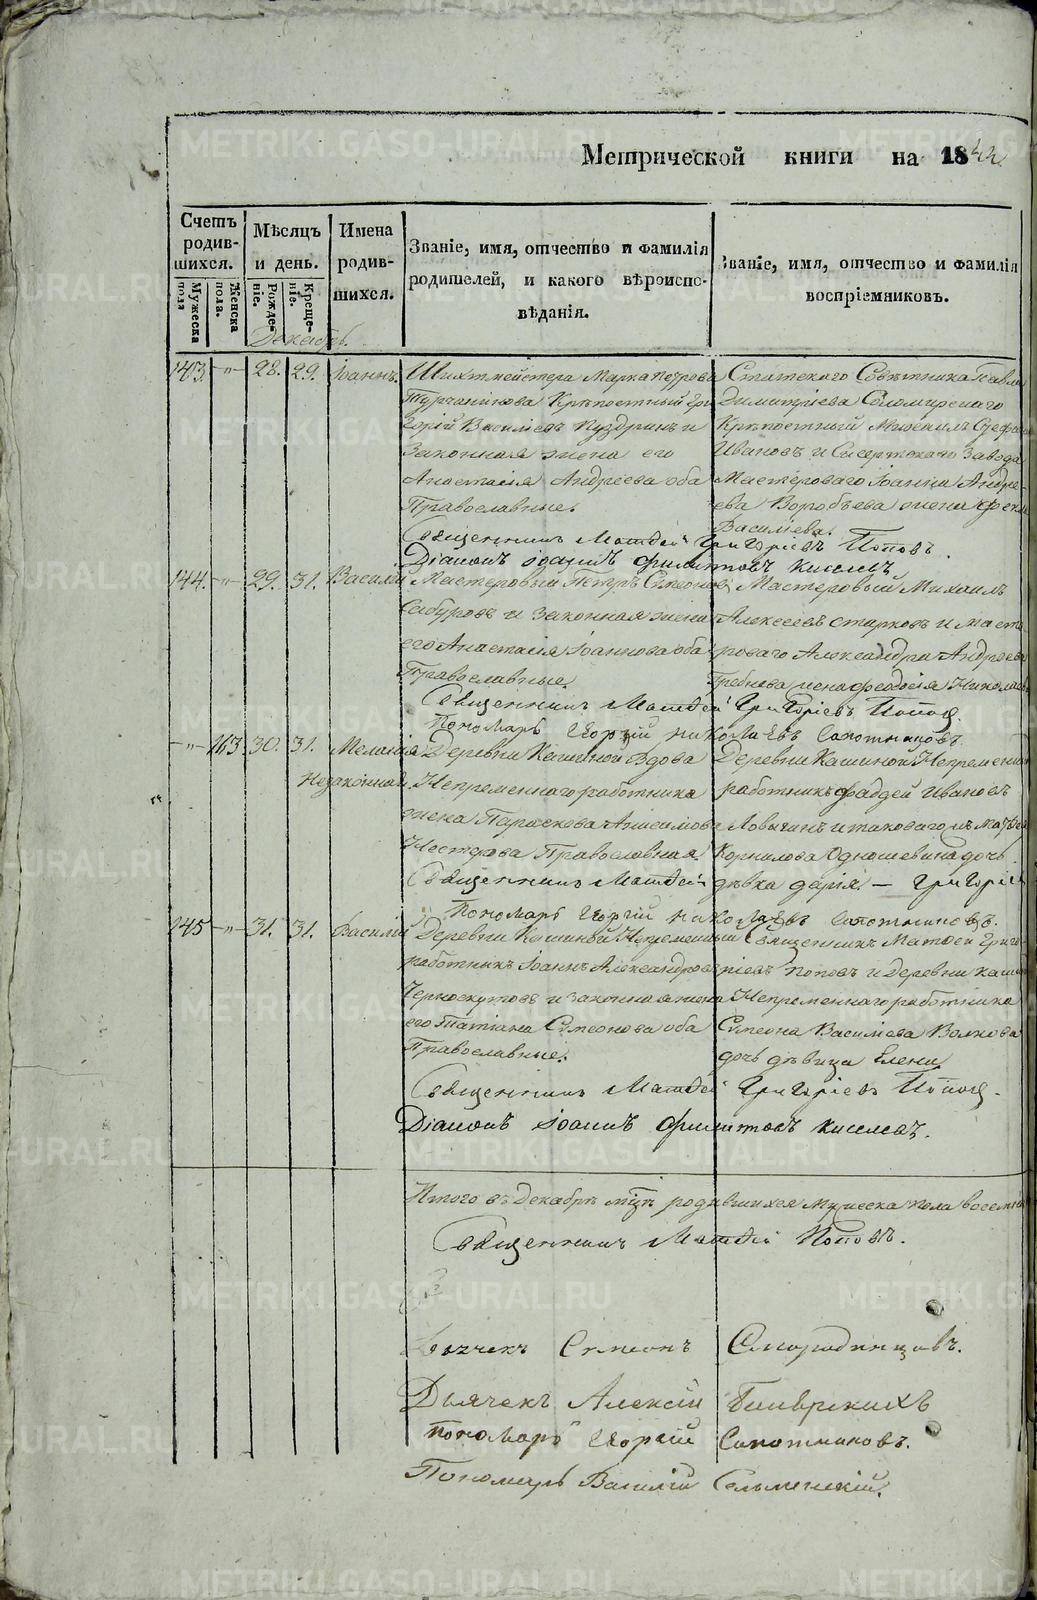 Метрической книги на 1844
Счетъ родив-шихся.
Мужеска пола
Женска пола.
Мѣсяцъ и день.
Рожде-ніе.
Креще-ніе.
Имена родив-шихся.
Званіе, имя, отчество и фамилія
родителей, и какого вѣроиспо-
вѣданія.
Званіе, имя, отчество и фамилія
воспріемниковъ.
Декабрь.
143. —"— 28. 29. Іоаннъ.
Шихтмейстера Марка Петрова
Турчанинова Крѣпостный Гри
горій Василіевъ Пуздринъ и
Законная жена его
Анастасія Андреева оба
Православные.
Статскаго Совѣтника Павла
Димитріева Соломирскаго
Крѣпостный Михаилъ
Ивановъ и Сысертскаго Завода
Мастероваго Іоанна Андре-
ева Воробьева жена
Василіева.
Священникъ Матѳей Григоріевъ Поповъ.
Діаконъ Іоаннъ Филиповъ Киселевъ
144. —"— 29. 31. Василій
Мастеровый Петръ Симеоновъ
Сабуровъ и Законная жена
его Анастасія Іоаннова оба
Православные.
Мастеровый Михаилъ
Алексеевъ Старковъ и Масте
роваго Александра Андреева
Гребнева жена Феодосія Николаева
Священникъ Матѳей Григоріевъ Поповъ.
Пономарь Георгій Николаевъ Сапожниковъ.
—"— 163 30. 31. Меланія
Незаконная.
Деревни Кашиной Вдова
Непременнаго работника
жена Параскева Анисимова
Нестерова Православная.
Деревни Кашиной Непременный
работникъ Фаддей Ивановъ
Ловыгинъ и таковаго
Корнилова Одношевина дочь
дѣвка Дарія —
Священникъ Матѳей Григоріевъ
Пономарь Георгій Николаевъ Сапожниковъ.
145 —"— 31. 31. Василій
Деревни Кашиной Непременный
работникъ Іоаннъ Александровъ
Черноскутовъ и законная жена
его Татіана Симеонова оба
Православные.
Священникъ Матѳей Григо-
ріевъ Поповъ и Деревни Кашиной
Непременнаго работника
Симеона Василіева Волкова
дочь дѣвица Елена
Священникъ Матѳей Григоріевъ Поповъ.
Діаконъ Іоаннъ Филиповъ Киселевъ.
Итого въ Декабрѣ мцѣ родившихся мужеска пола
Священникъ Матѳей Поповъ.
Дьячекъ Симеонъ Смородинцовъ.
Дьячекъ Алексій
Пономарь Георгій Сапожниковъ.
Пономарь Василій Сельменскій.
METRIKI.GASO-URAL.RU